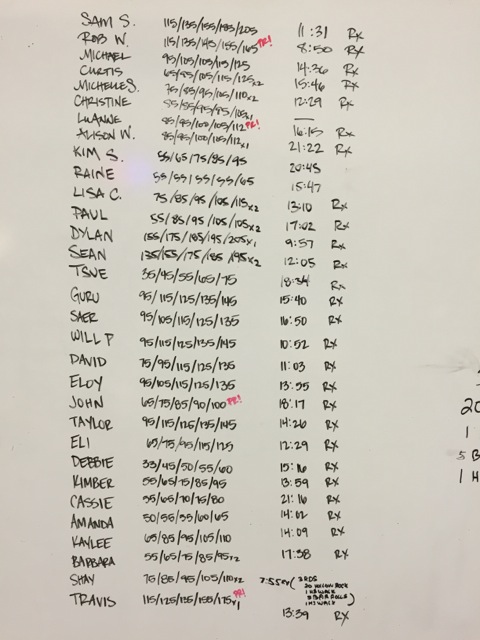 SAM S. 115/135/155/185/205 11:31 Rx
ROB W. 115/135/145/155/165 PR! 8:50 Rx
MICHAEL 95/105/115/115/125 14:36 Rx
CURTIS 65/85/105/115/125x2 15:46 Rx
MICHELLE S. 75/85/95/105/110x2 12:29 Rx
CHRISTINE 55/65/75/85/95x1 —
LUANNE 85/95/100/105/112 PR! 16:15 Rx
ALISON W. 85/95/100/105/112x1 21:22 Rx
KIM S. 55/65/75/85/95 20:45
RAINE 55/55/55/55/65 15:47
LISA C. 75/85/95/105/115x2 13:10 Rx
PAUL 55/85/95/105/105x2 17:02 Rx
DYLAN 155/175/185/195/205x1 9:57 Rx
SEAN 135/155/175/185/195x2 12:05 Rx
TSUE 35/45/55/65/75 18:34 Rx
GURU 95/115/125/135/145 15:40 Rx
SAER 95/105/115/125/135 16:50 Rx
WILL P 95/115/125/135/145 10:52 Rx
DAVID 75/95/115/125/135 11:03 Rx
ELOY 95/105/115/125/135 13:55 Rx
JOHN 65/75/85/90/100 PR! 18:17 Rx
TAYLOR 95/115/125/135/145 14:26 Rx
ELI 65/75/95/115/125 12:29 Rx
DEBBIE 33/45/50/55/60 15:16 Rx
KIMBER 55/65/75/85/95 13:59 Rx
CASSIE 55/65/70/75/80 21:16 Rx
AMANDA 50/55/55/60/65 14:02 Rx
KAYLEE 65/85/95/105/110 14:09 Rx
BARBARA 55/65/75/85/95x2 17:38 Rx
SHAY 75/85/95/105/110x2 7:55 Rx ( 3 RDS
20 HOLLOW ROCK
1 HS WALK
)
TRAVIS 115/125/135/155/175x1 PR! 13:39 Rx
20
1
5 B
1 H